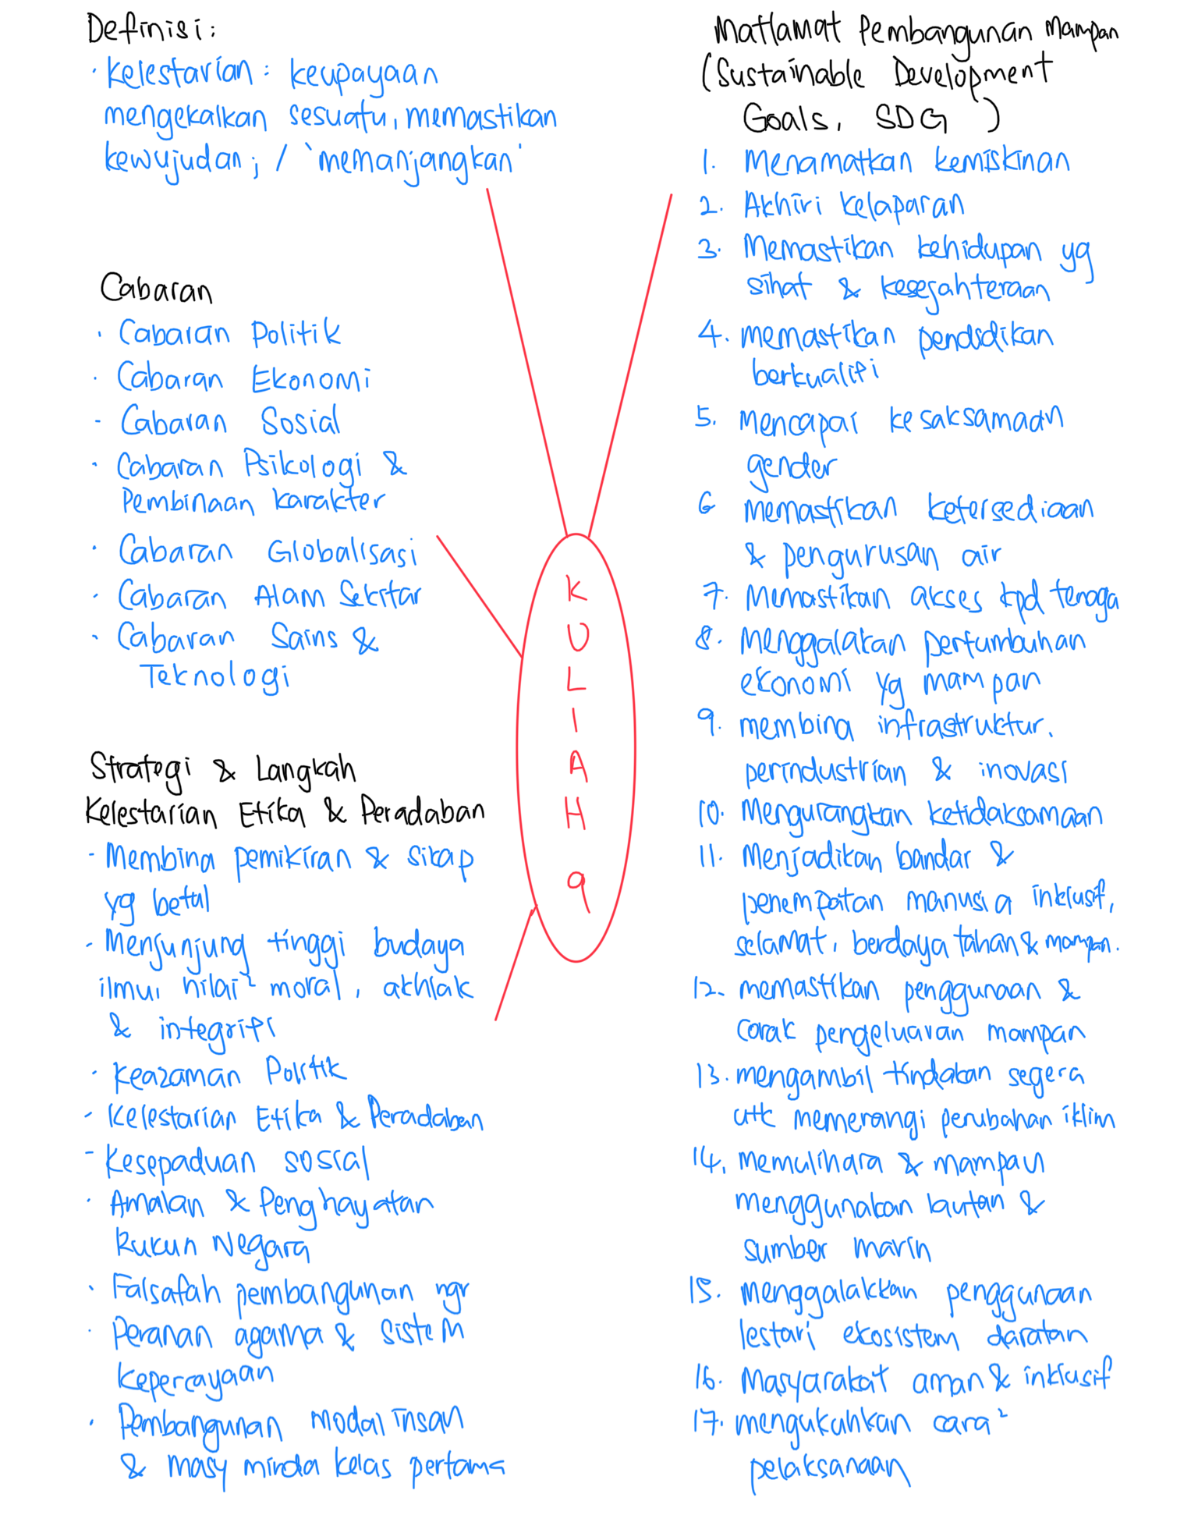 Definisi:
· Kelestarian : keupayaan
mengekalkan sesuatu, memastikan
kewujudan; / 'memanjangkan'
Cabaran
· Cabaran Politik
· Cabaran Ekonomi
- Cabaran Sosial
· Cabaran Psikologi &
Pembinaan karakter
· Cabaran Globalisasi
· Cabaran Alam Sekitar
· Cabaran Sains &
Teknologi
Strategi & Langkah
Kelestarian Etika & Peradaban
- Membina pemikiran & sikap
yg betul
- Menjunjung tinggi budaya
ilmu, nilai² moral, akhlak
& integriti
· Keazaman Politik
- Kelestarian Etika & Peradaban
- Kesepaduan sosial
· Amalan & Penghayatan
Rukun Negara
· Falsafah pembangunan ngr
· Peranan agama & sistem
kepercayaan
· Pembangunan modal insan
& masy minda kelas pertama
KULIAH 9
Matlamat Pembangunan Mampan
(Sustainable Development
Goals, SDG )
1. Menamatkan kemiskinan
2. Akhiri kelaparan
3. Memastikan kehidupan yg
sihat & kesejahteraan
4. memastikan pendidikan
berkualiti
5. Mencapai kesaksamaan
gender
6 memastikan ketersediaan
& pengurusan air
7. Memastikan akses kpd tenaga
8. Menggalakan pertumbuhan
ekonomi yg mampan
9. membina infrastruktur,
perindustrian & inovasi
10. Mengurangkan ketidaksamaan
11. Menjadikan bandar &
penempatan manusia inklusif,
selamat, berdaya tahan & mampan.
12. memastikan penggunaan &
corak pengeluaran mampan
13. mengambil tindakan segera
utk memerangi perubahan iklim
14. Memulihara & mampan
menggunakan lautan &
sumber marin
15. menggalakkan penggunaan
lestari ekosistem daratan
16. Masyarakat aman & inklusif
17. mengukuhkan cara²
pelaksanaan